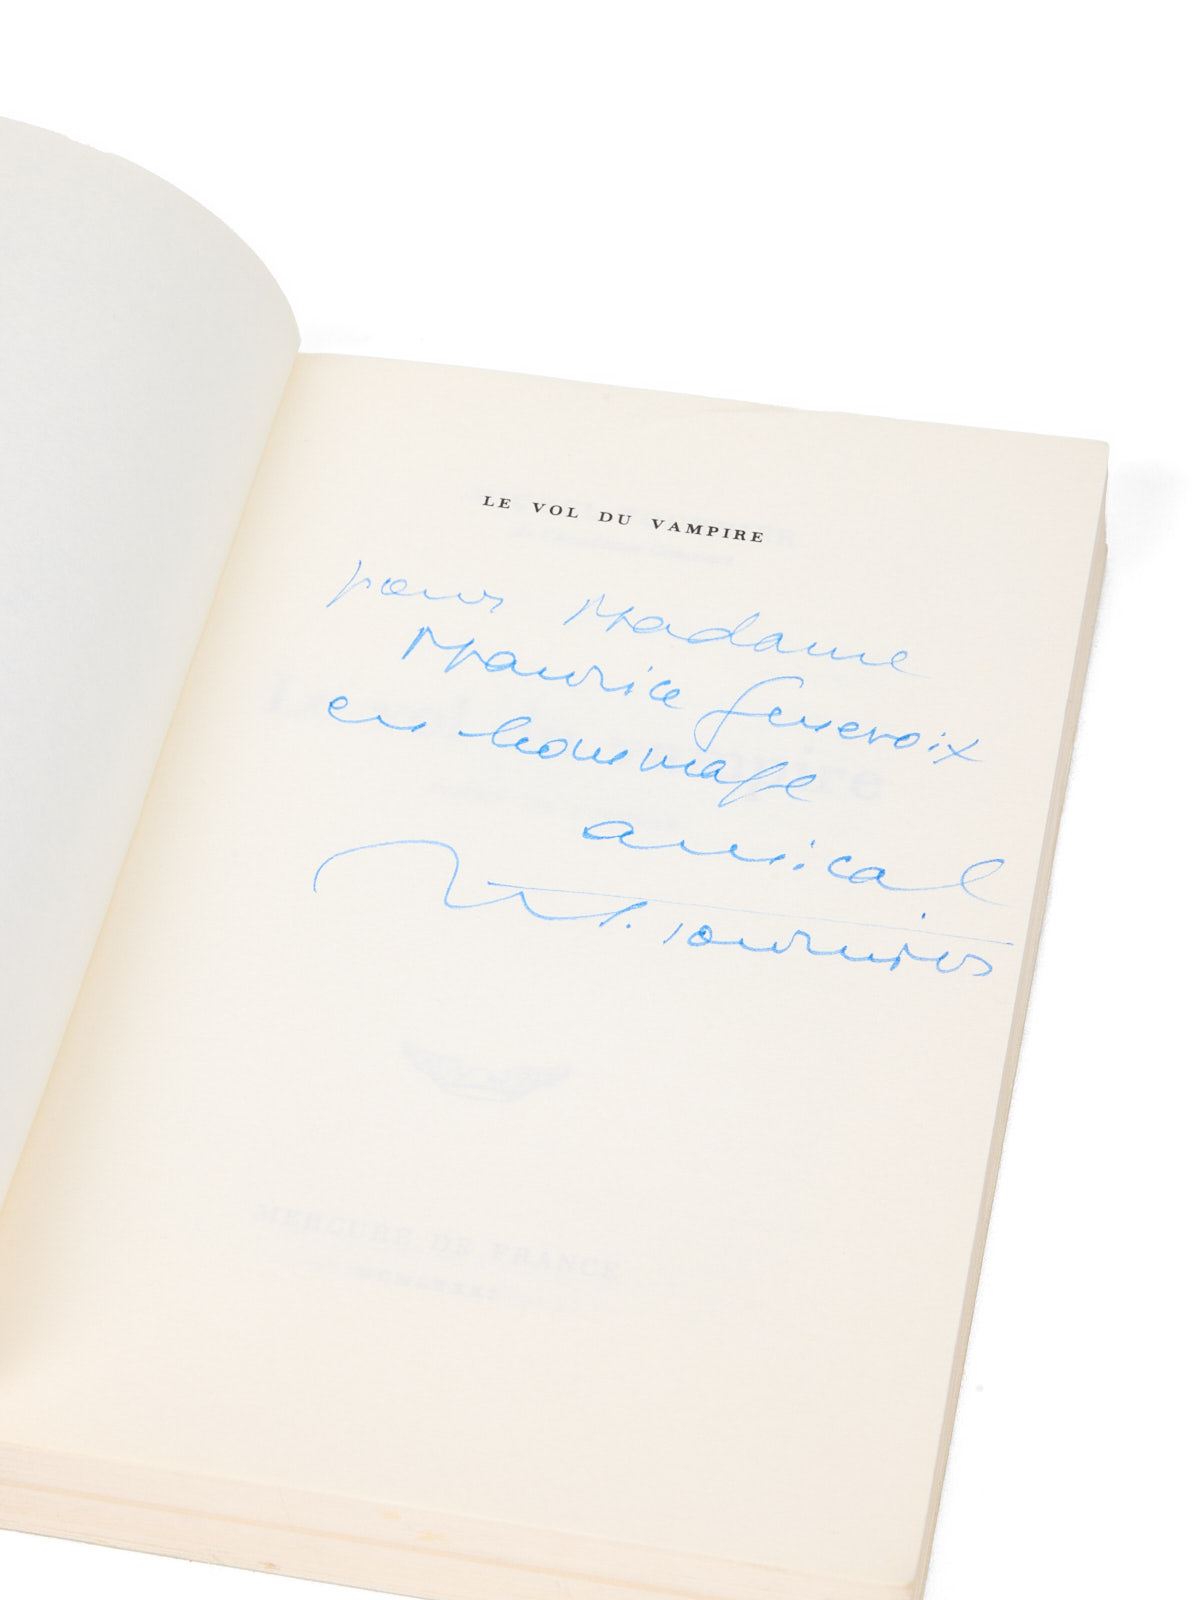 LE VOL DU VAMPIRE
pour Madame
Maurice Genevoix
en hommage
amical
M. Tournier
MERCURE DE FRANCE